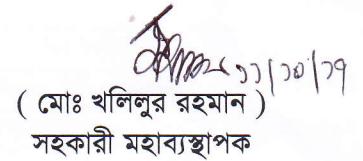 ১১/১০/১৭
( মোঃ খলিলুর রহমান )
সহকারী মহাব্যস্থাপক